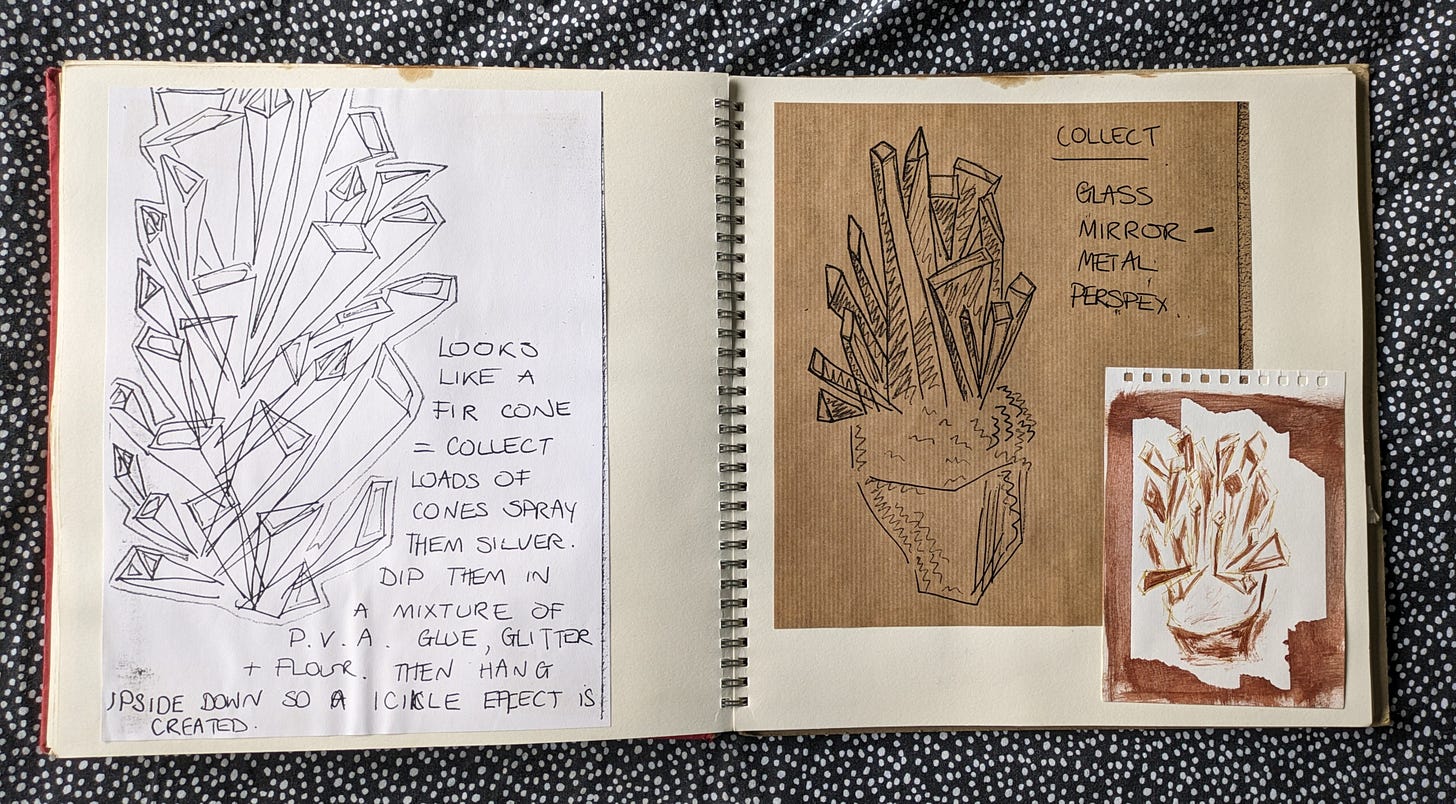 LOOKS
LIKE A
FIR CONE
= COLLECT
LOADS OF
CONES SPRAY
THEM SILVER.
DIP THEM IN
A MIXTURE OF
P.V.A. GLUE, GLITTER
+ FLOUR. THEN HANG
UPSIDE DOWN SO A ICICLE EFFECT IS
CREATED.
COLLECT
GLASS
MIRROR -
METAL
PERSPEX.